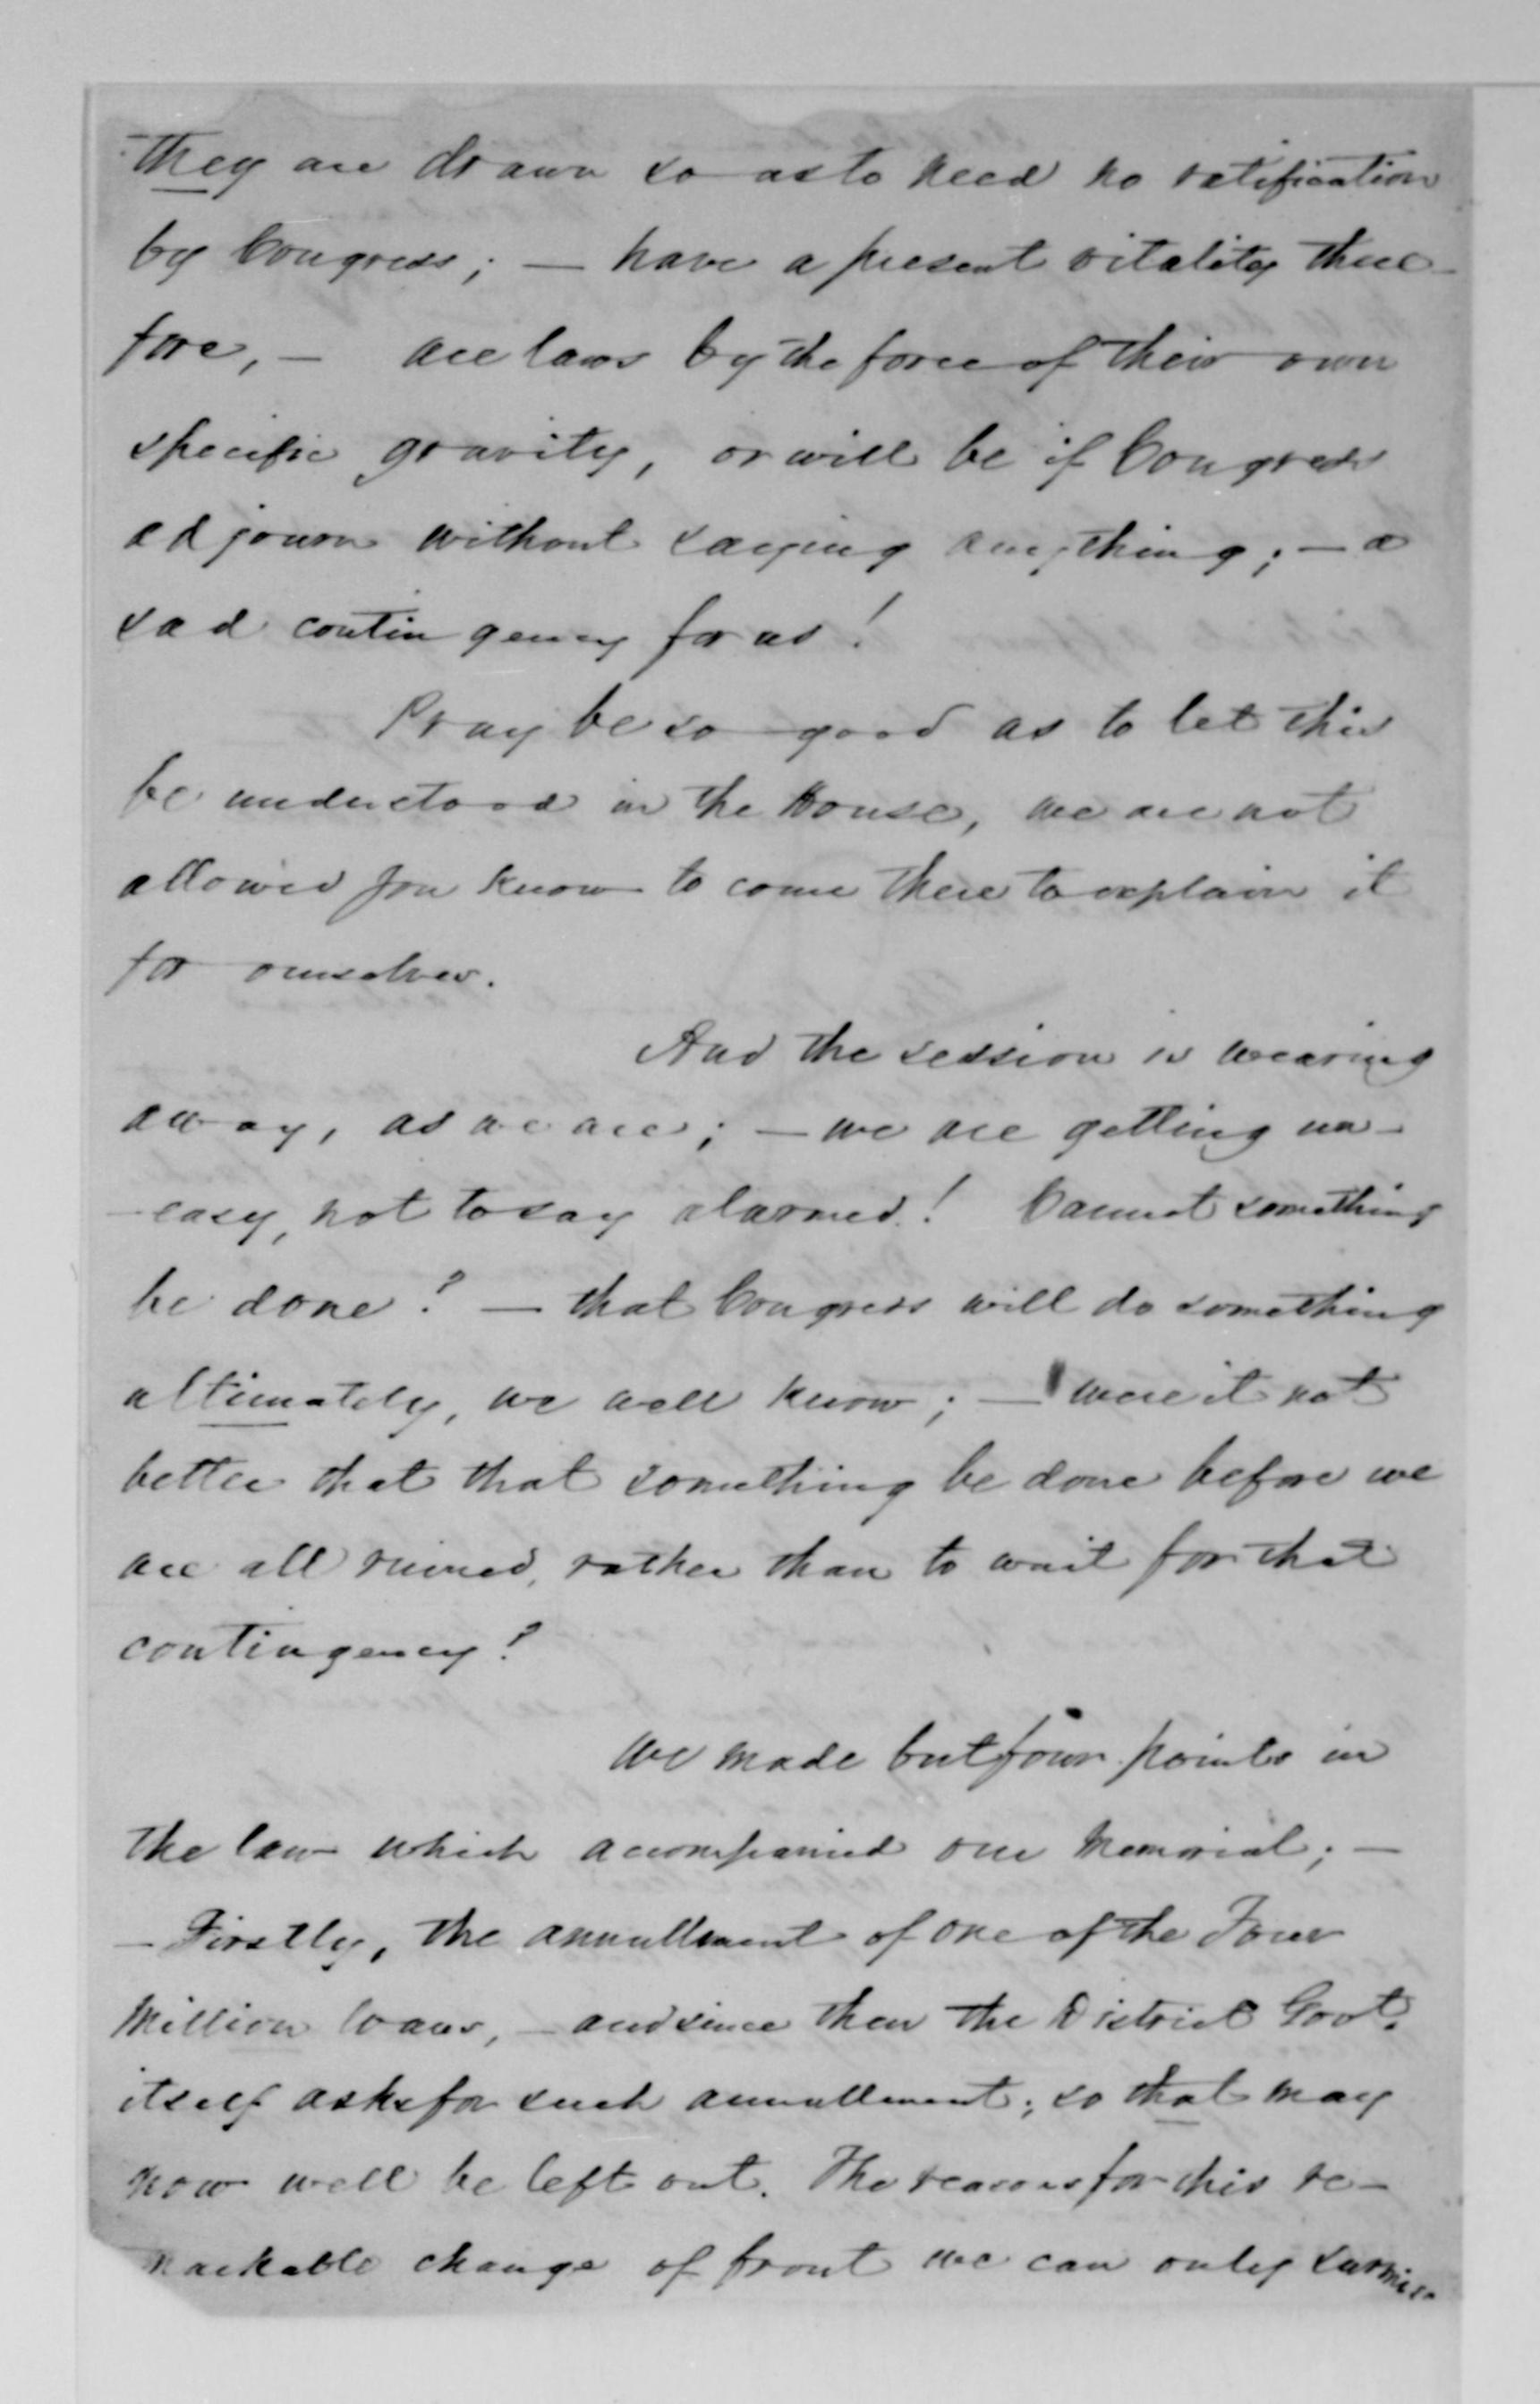 They are drawn so as to need no ratification
by Congress; — have a present vitality there-
fore, — are laws by the force of their own
specific gravity, or will be if Congress
adjourn without saying anything; — a
sad contingency for us!
Pray be so good as to let this
be understood in the House, we are not
allowed you know to come there to explain it
for ourselves.
And the session is wearing
away, as we are; — we are getting un-
-easy, not to say alarmed! Cannot something
be done? — that Congress will do something
ultimately, we well know; — were it not
better that that something be done before we
are all ruined, rather than to wait for that
contingency?
We made but four points in
the law which accompanied our Memorial; —
— Firstly, the annullment of one of the Four
Million loans, — and since then the District Govt.
itself asks for such annullment; so that may
now well be left out. The reasons for this re-
markable change of front we can only surmise